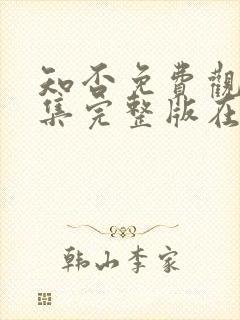 知否免費觀
集完整版在
韩山李家